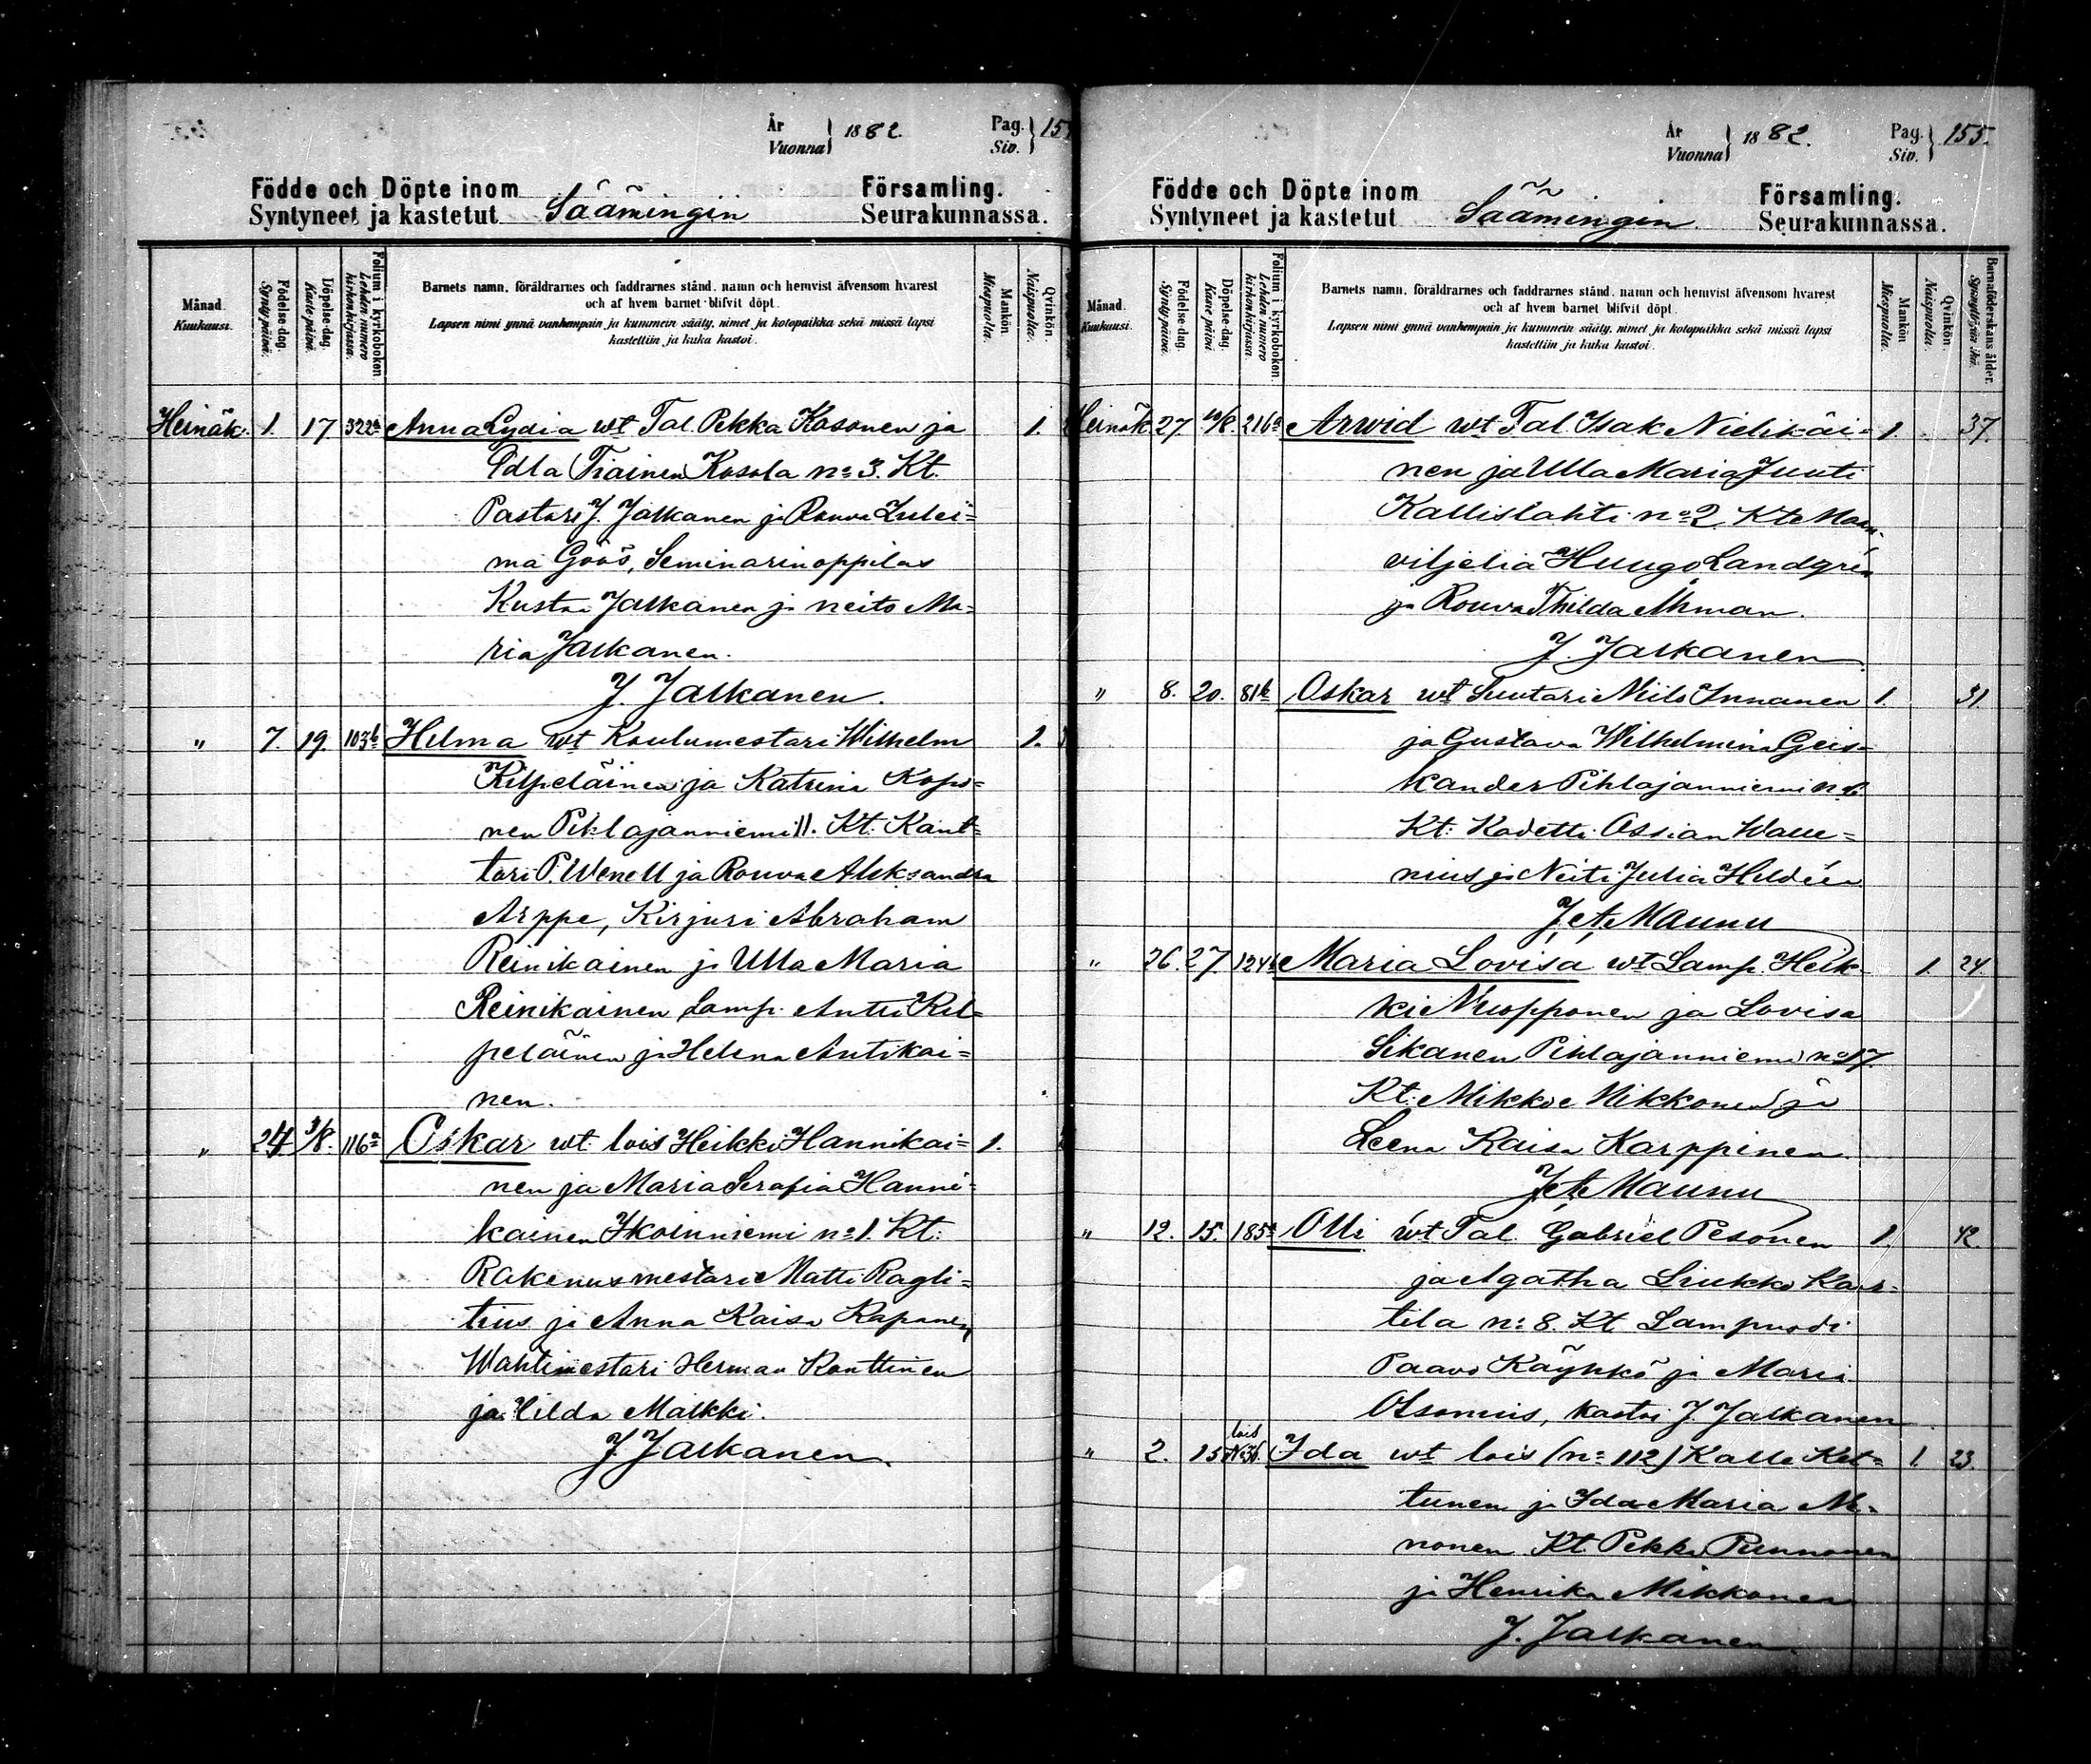 År
Vuonna 1882.
Pag.
Siv. 15
Födde och Döpte inom
Syntyneet ja kastetut Säämingin
Församling.
Seurakunnassa.
Månad.
Kuukausi.
Födelse-dag.
Synty päivä.
Döpelse-dag.
Kaste päivä
Folium i kyrkoboken.
Lehden numero kirkonkirjassa.
Barnets namn, föräldrarnes och faddrarnes stånd, namn och hemvist äfvensom hvarest
och af hvem barnet blifvit döpt.
Lapsen nimi ynnä vanhempain ja kummein sääty, nimet ja kotopaikka sekä missä lapsi
kastettiin ja kuka kastoi.
Mankön.
Miespuolta.
Qvinkön.
Naispuolta.
Heinäk. 1. 17 322a Anna Lydia wt Tal. Pekka Kosonen ja 1.
Edla Tiainen Kosola no 3. Kt.
Pastori J. Jalkanen ja Rouva Zulei=
ma Göös, Seminarinoppilas
Kustaa Jalkanen ja neito Ma=
ria Jalkanen.
J. Jalkanen.
" 7. 19. 103b Hilma wt Koulumestari Wilhelm 1.
Kilpeläinen ja Katrina Kopo=
nen Pihlajanniemi 11. Kt. Kant=
tori P. Wenell ja Rouva Aleksandra
Arppe, Kirjuri Abraham
Reinikainen ja Ulla Maria
Reinikainen Lamp. Antti Kil=
peläinen ja Helena Antikai=
nen.
" 24 3/8. 116a Oskar wt. lois Heikki Hannikai= 1.
nen ja Maria Serafia Hanni=
kainen Ikoinniemi no 1. Kt:
Rakenusmestari Matti Ragli=
tius ja Anna Kaisa Kaponen
Wahtimestari Herman Konttinen
ja Hilda Malkki.
J. Jalkanen.
År
Vuonna 1882.
Pag.
Siv. 155.
Födde och Döpte inom
Syntyneet ja kastetut Säämingin.
Församling.
Seurakunnassa.
Månad.
Kuukausi.
Födelse-dag.
Synty päivä.
Döpelse-dag.
Kaste päivä
Folium i kyrkoboken.
Lehden numero kirkonkirjassa.
Barnets namn, föräldrarnes och faddrarnes stånd, namn och hemvist äfvensom hvarest
och af hvem barnet blifvit döpt.
Lapsen nimi ynnä vanhempain ja kummein sääty, nimet ja kotopaikka sekä missä lapsi
kastettiin ja kuka kastoi.
Mankön
Miespuolta.
Qvinkön.
Naispuolta.
Barnaföderskans ålder.
Heinäk 27. 10/8. 216a Arwid wt Tal Isak Nielikäi= 1. 37.
nen ja Ulla Maria Juuti
Kallislahti no 2 Kt Maan=
viljeliä Huugo Landgrén
ja Rouva Thilda Åhman.
J. Jalkanen
" 8. 20. 81b Oskar wt Suutari Niilo Innanen 1. 31
ja Gustava Wilhelmina Geis=
kander Pihlajanniemi
Kt: Kadetti Ossian Walle=
nius ja Neiti Julia Hildéen
J. A. Maunu
" 26. 27 124b Maria Lovisa wt Lamp. Heik= 1. 24.
ki Nuopponen ja Lovisa
Sikanen Pihlajanniemi no 17.
Kt: Mikko Mikkonen ja
Leena Kaisa Karppinen.
J. A. Maunu
" 12. 15. 185a Olli wt Tal. Gabriel Pesonen 1. 42.
ja Agatha Liukko Kar=
tila no 8. Kt Lampuodi
Paavo Käyhkö ja Maria
Olsonius, kastoi J. Jalkanen
" 2. 15 lois Ida wt lois (no 112) Kalle Ket= 1. 23.
tunen ja Ida Maria M=
nonen. Kt Pekka Punnonen
ja Henrika Mikkonen
J. Jalkanen.